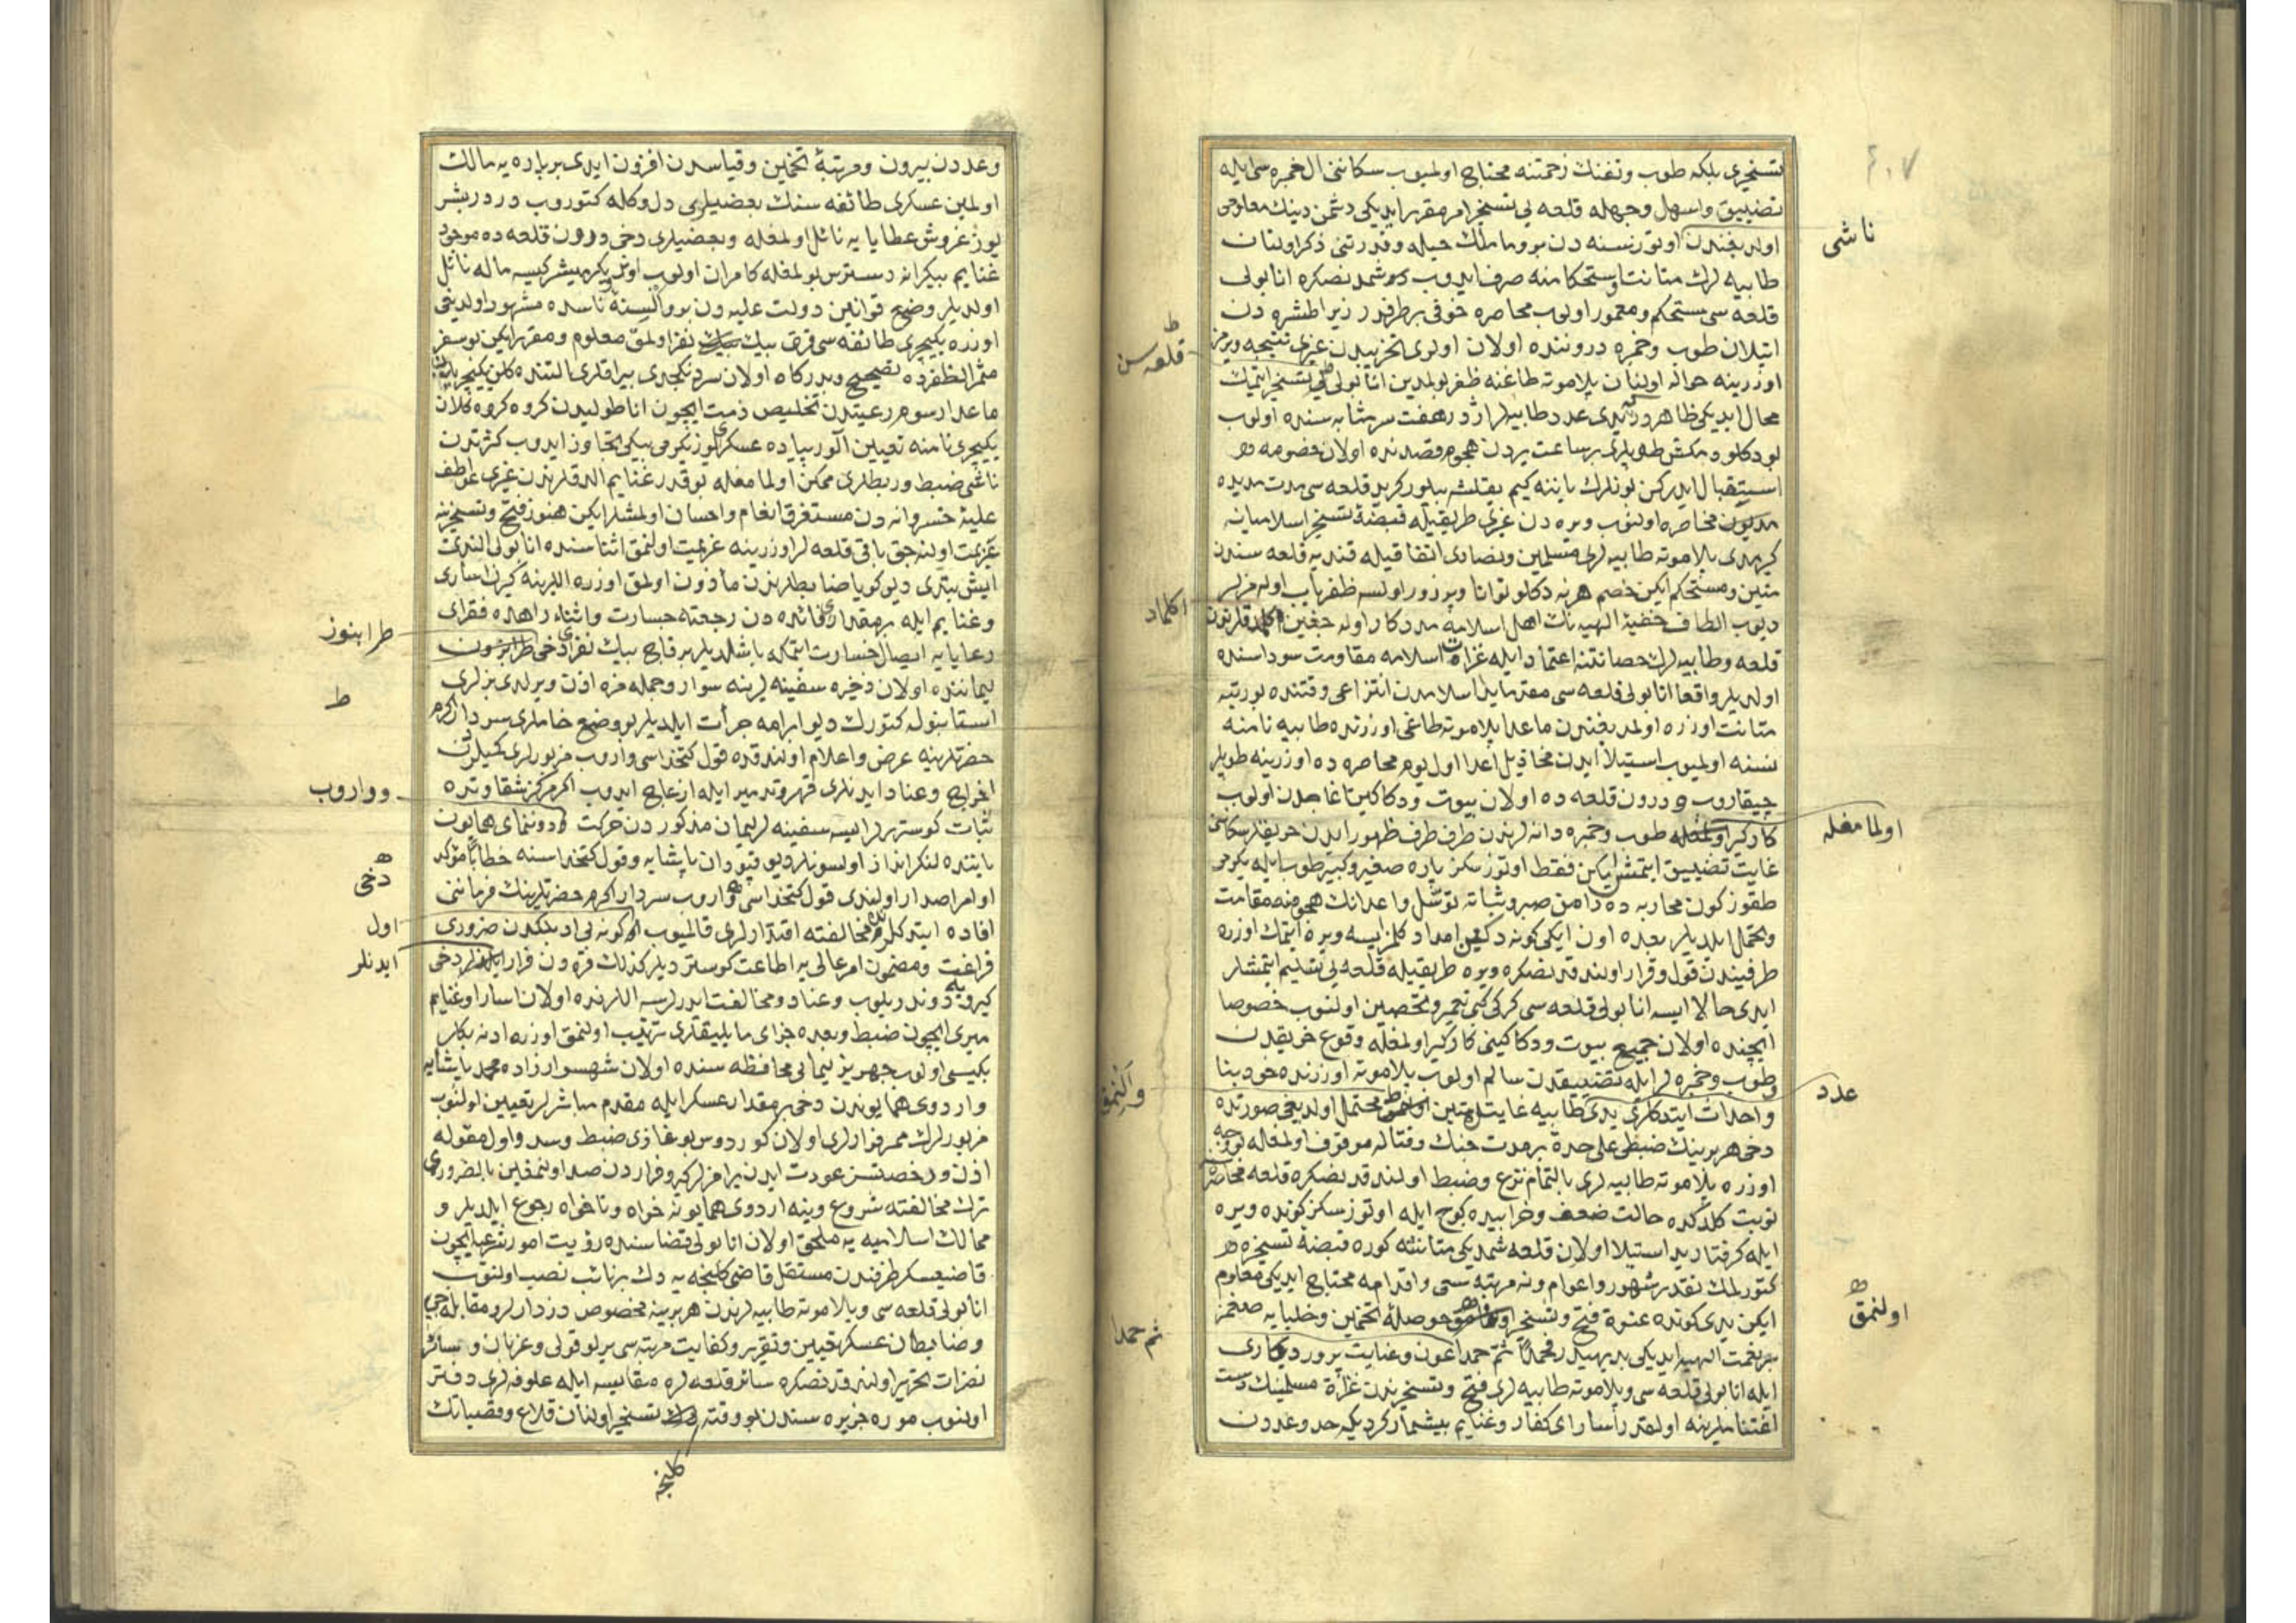 تسخیری بلکه طوب وتفنك زحمتنه محتاج اولمیوب سکاننی ال خمبره سی ایله
تضییق واسهل وجهله قلعه یی تسخیر امر مقرر ایدیکی دشمن دینك معلومی
اولدیغندن اوتوز سنه دن برو ماملك حیله وقدرتنی ذکر اولنان
ناشی
طابیه لرك متانت واستحکامنه صرف ایدوب کوشمدنصکره انابولی
قلعه سی مستحکم ومعمور اولوب محاصره خوفی برطرفدر زیرا طشره دن
اتیلان طوب وخمبره دروننده اولان اولوی تخریبدن غیری نتیجه ویرمز
قلعه سن
اوزرینه حواله اولنان پلاموته طاغنه ظفر بولمدین انابولی یی تسخیر ایتمك
محال ایدیکی ظاهردر یدی عدد طابیه لر اژدر هفت سر مثابه سنده اولوب
طوپلری بر ساعت یردن هجوم قصدنده اولان خصومه
استقبال ایدرکن بونلرك یاننه کیم یقلشه بیلور کرید قلعه سی مدت مدیده
محاصره اولنوب ویره دن غیری طریقیله قبضۀ تسخیر اسلامیانه
کیرمدی پلاموته طابیه لری مسلمین ونصاری اتفاقیله قندیه قلعه سندن
متین ومستحکم ایکن خصم هر نه دکلو توانا وپرزور اولسه ظفریاب اوله مزلر
اکلماد
دیوب الطاف خفیۀ الهیه نك اهل اسلامه مددکار اوله جغین اکلمدقلرندن
قلعه وطابیه لرك حصانتنه اعتماد ایله غزاة اسلامه مقاومت سوداسنده
اولدیلر واقعا انابولی قلعه سی مقدما ید اسلامدن انتزاعی وقتنده بو رتبه
متانت اوزره اولمدیغندن ماعدا پلاموته طاغی اوزرنده طابیه نامنه
نسنه اولمیوب استیلا ایدن مخاذیل اعدا اول یوم محاصره ده اوزرینه طوپلر
چیقاروب ودرون قلعه ده اولان بیوت ودکاکین تاغاجدن اولوب
کارکیر اولمغله طوب وخمبره دانه لرندن طرف طرف ظهور ایدن حریقلر سکاننی
اولمامغله
غایت تضییق ایتمشلر ایکن فقط اوتوز سکز پاره صغیر وکبیر طوب ایله یکرمی
طقوز کون محاربه ده دامن صبر وثباته توسل واعدانك هجومنه مقاومت
وتحمل ایلدیلر بعده اون ایکی کونه دکین امداد کلمز ایسه ویره ایتمك اوزره
طرفیندن قول وقرار اولندقدنصکره ویره طریقیله قلعه یی تسلیم ایتمشلر
ایدی حالا ایسه انابولی قلعه سی کرکی کبی تعمیر وتحصین اولنوب خصوصا
ایچنده اولان جمیع بیوت ودکاکینی کارکیر اولمغله وقوع حریقدن
وطوب وخمبره لر ایله تضییقدن سالم اولوب پلاموته اوزرنده خود بنا
واحداث ایتدکلری یدی طابیه غایت متین محتمل اولدیغی صورتده
عدد
والنمق
دخی هر برینك ضبطی علی حدة بر مدت جنك وقتاله موقوف اولمغله بو وجه
اوزره پلاموته طابیه لری بالتمام نزع وضبط اولندقدنصکره قلعه محاصره
نوبت کلدکده حالت ضعف وخرابیده کوج ایله اوتوز سکز کونده ویره
ایله کرفتار ید استیلا اولان قلعه شمدیکی متانتنه کوره قبضۀ تسخیره
کتورلمك نقدر شهور واعوام ونه مرتبه سعی واقدامه محتاج ایدیکی معلوم
ایکن یدی کونده عنوة فتح وتسخیر حوصلۀ تخمین وخلیایه صغمز
اولنمق
بر نعمت الهیه ایدیکی بدیهیدر فحمدا ثم حمدا عون وعنایت پروردکاری
ثم حمدا
ایله انابولی قلعه سی وپلاموته طابیه لری فتح وتسخیرندن غزاة مسلمینك دست
اغتناملرینه اولقدر اسارای کفار وغنایم بیشمار کردیکه حد وعددن
وعددن بیرون ومرتبۀ تخمین وقیاسدن افزون ایدی بر پاره یه مالك
اولمین عسکری طائفه سنك بعضیلری دل وکله کتوروب وردر بشر
یوز غروش عطایا یه نائل اولمغله وبعضیلری دخی درون قلعه ده موجود
غنایم بیکرانه دسترس بولمغله کامران اولوب اونر یکرمیشر کیسه ماله نائل
اولدیلر وضع قوانین دولت علیه دن برو السنۀ ناسده مشهور اولدیغی
اوزره یکیچری طائفه سی قرق بیك نفر اولمق معلوم ومقرر ایکن بو سفر
مثمر الظفرده تصحیح وبدرکاه اولان سردنکچدی بیراقلری التنده کلن یکیچریلردن
ماعدا رسوم رعیتدن تخلیص ذمت ایچون اناطولیدن کروه کروه کلان
یکیچری نامنه تعیین الور پیاده عسکری یوز یکرمی بیکی تجاوز ایدوب کثرتدن
ناشی ضبط وربطلری ممکن اولمامغله بو قدر غنایم الدقلرندن غیری عواطف
علیۀ خسروانه دن مستغرق انعام واحسان اولمشلر ایکن هنوز فتح وتسخیرینه
عزیمت اولنه جق باقی قلعه لر اوزرینه عزیمت اولنمق اثناسنده انابولی الندی
ایش بتدی دیو کویا ضابطلرندن مأذون اولمق اوزره اللرینه کیرن اساری
وغنایم ایله بر مقداری فائده دن رجعته جسارت واثناء راهده فقرای
رعایایه ایصال خسارت ایتمکه باشلدیلر برقاج بیك نفری دخی طرابزون
طرابنوز
لیماننده اولان ذخیره سفینه لرینه سوار وجمله مزه اذن ویرلدی بزلری
ط
استانبوله کتورك دیو ابرامه جرأت ایلدیلر بو وضع خاملری سردار اکرم
حضرتلرینه عرض واعلام اولندقده قول کتخداسی واروب مزبورلری کمیلردن
اخراج وعناد ایدنلری قهر وتدمیر ایله ازعاج ایدوب اکر مرکز شقاوتده
وواروب
ثبات کوسترلر ایسه سفینه لر لیمان مذکوردن حرکت ودوننمای همایون
یاننده لنکر انداز اولسونلر دیو قپودان پاشایه وقول کتخداسنه خطابا مؤکد
دخی
اوامر اصدار اولندی قول کتخداسی واروب سردار اکرم حضرتلرینك فرماننی
افاده ایتدکلرنده مخالفته اقتدارلری قالمیوب اول کونه بی ادبلکدن ضروری
اول
فراغت ومضمون امر عالی یه اطاعت کوستردیلر کذلك قره دن فرار ایدنلر دخی
ایدنلر
کیرویه دوندریلوب وعناد ومخالفت ایدرلرسه اللرنده اولان اسارا وغنایم
میری ایچون ضبط وبعده جزای مایلیقلری ترتیب اولنمق اوزره ادنه بکلر
بکیسی اولوب جهریز لیمانی محافظه سنده اولان شهسوار زاده محمد پاشایه
واردوی همایوندن دخی بر مقدار عسکر ایله مقدم مباشرلر تعیین اولنوب
مزبورلرك ممر فرارلری اولان کوردوس بوغازی ضبط وسد واول مقوله
اذن ورخصتسز عودت ایدن یرامزلر کیرو فراردن صد اولنمغین بالضروری
ترك مخالفته شروع وینه اردوی همایونه خواه وناخواه رجوع ایلدیلر و
ممالك اسلامیه یه ملحق اولان انابولی قضاسنده رؤیت امور شرعیه ایچون
قاضیعسکر طرفندن مستقل قاضی کلنجه یه دك بر نائب نصب اولنوب
انابولی قلعه سی وپلاموته طابیه لرندن هر برینه مخصوص دزدارلر ومقابله جی
وضابطان عسکر تعیین وتقریر وکفایت مرتبه سی یرلو قولی وعزبان وسائر
نفرات تحریر اولندقدنصکره سائر قلعه لره مقایسه ایله علوفه لری دفتر
اولنوب موره جزیره سندن بو وقته تسخیر اولنان قلاع وقصباتك
کلنجه